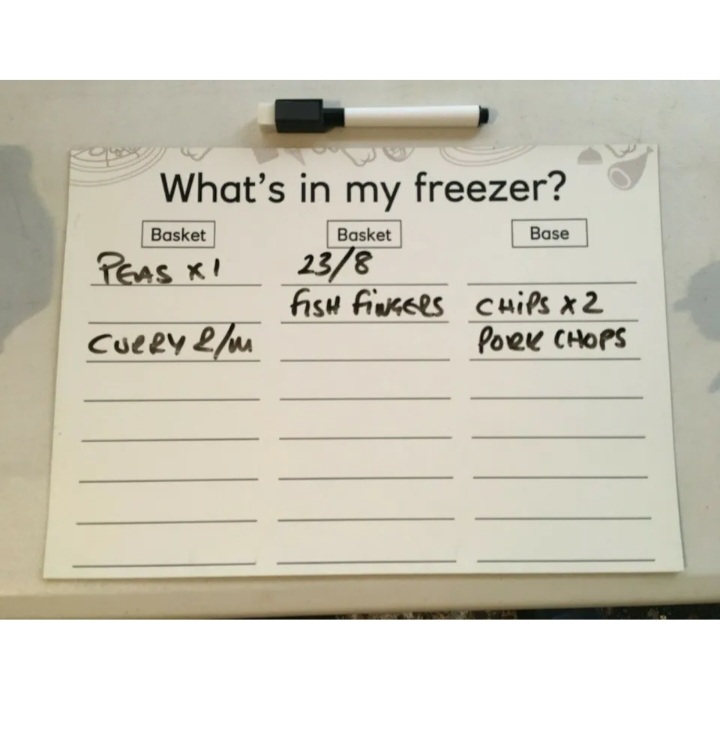 What's in my freezer?
Basket
PEAS x 1
CURRY R/M
Basket
23/8
FISH FINGERS
Base
CHIPS x 2
PORK CHOPS